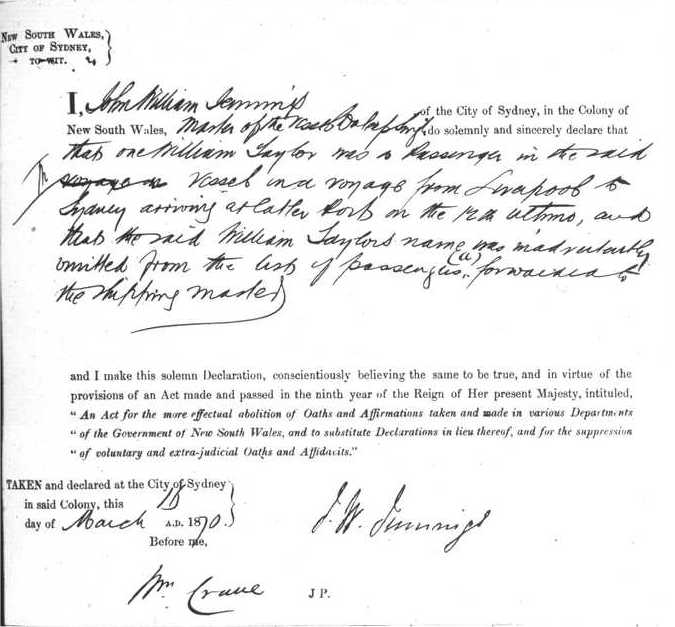 NEW SOUTH WALES,
CITY OF SYDNEY,
TO WIT.
I, John William Jennings of the City of Sydney, in the Colony of
New South Wales, Master of the Vessel do solemnly and sincerely declare that
that one William Taylor was a Passenger in the said
Vessel in a voyage from Liverpool to
Sydney arriving at latter Port on the 12th ultimo, and
that the said William Taylors name was inadvertently
omitted from the list of passengers (a) forwarded to
the Shipping Master
and I make this solemn Declaration, conscientiously believing the same to be true, and in virtue of the
provisions of an Act made and passed in the ninth year of the Reign of Her present Majesty, intituled,
"An Act for the more effectual abolition of Oaths and Affirmations taken and made in various Departments
"of the Government of New South Wales, and to substitute Declarations in lieu thereof, and for the suppression
"of voluntary and extra-judicial Oaths and Affidavits."
TAKEN and declared at the City of Sydney
in said Colony, this
day of March A.D. 1870.
Before me,
J. W. Jennings
Wm Crane J P.